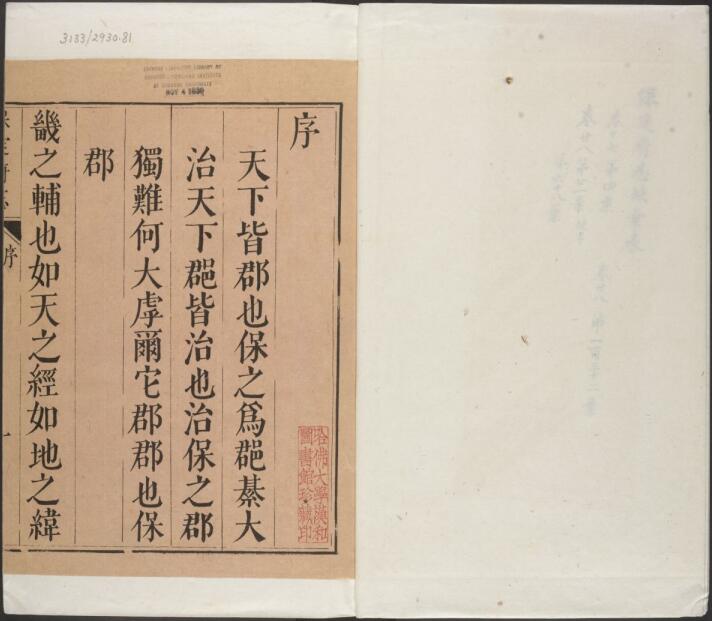 3133/2930.81
CHINESE-JAPANESE LIBRARY OF
HARVARD-YENCHING INSTITUTE
AT HARVARD UNIVERSITY
NOV 4 1936
序
天下皆郡也保之爲郡綦大
治天下郡皆治也治保之郡
獨難何大虖爾它郡郡也保
郡
畿之輔也如天之經如地之緯
保定府志
序
一
哈佛大學漢和
圖書館珍藏印